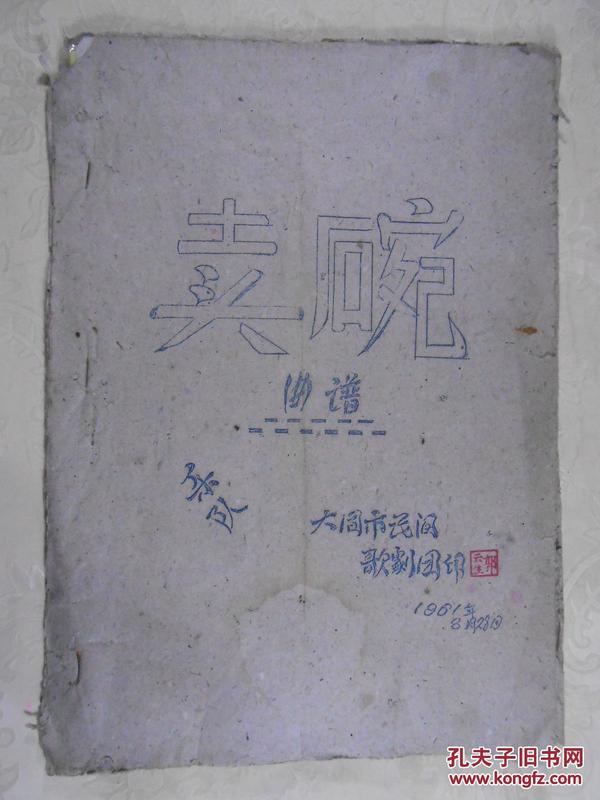 卖碗
曲谱
大同市民间
歌剧团印
1961年
8月28日
孔夫子旧书网
www.kongfz.com